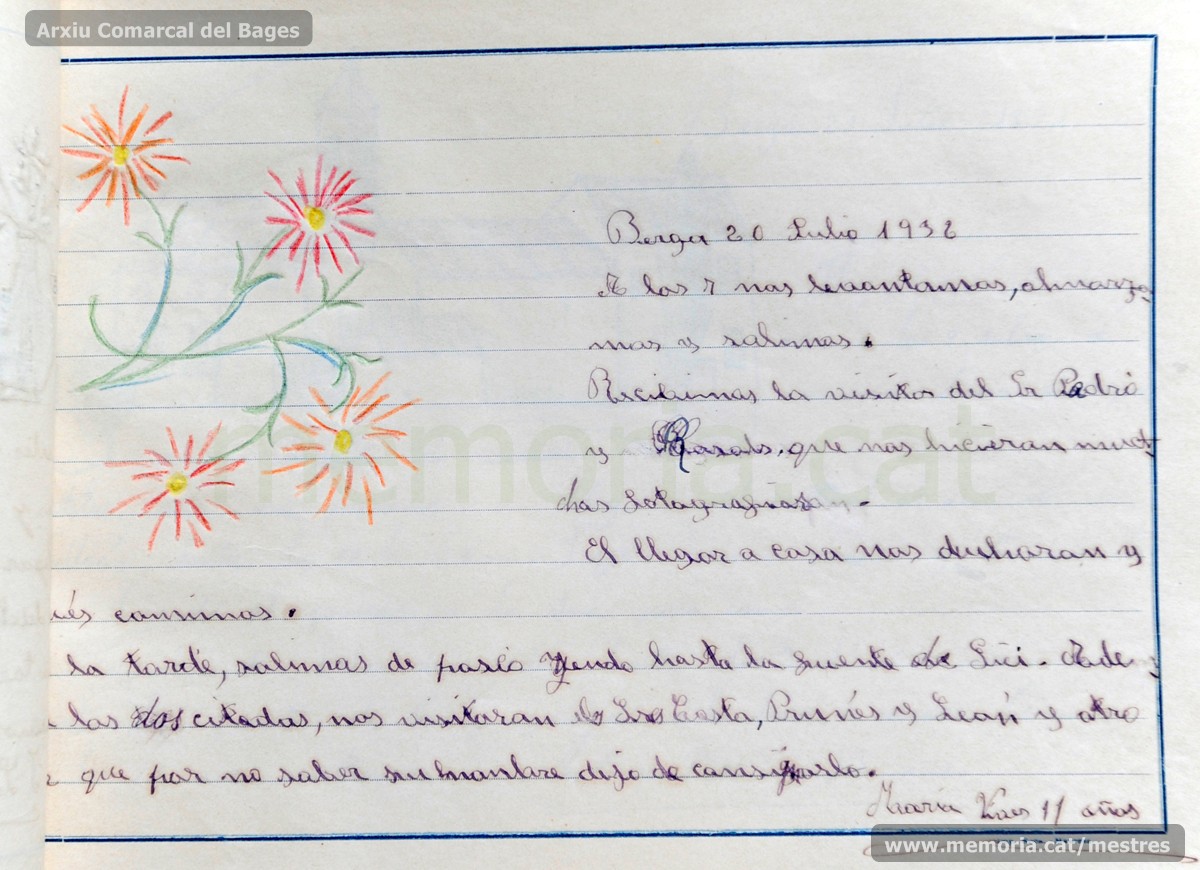 Arxiu Comarcal del Bages
Berga 20 Julio 1932
A las 7 nos levantamos, almorza
mos y salimos.
Recibimos la visita del Sr Pedró
y Rosals. que nos hicieron much
chas fotografias.
El llegar a casa nos ducharan y
ués comimos.
la tarde, salimos de paseo yendo hasta la fuente de Lici. Ade
las dos citadas, nos visitaran los Srs Costa, Prunés y León y otro
que por no saber su hombre dejo de consignarlo.
Maria 11 años
memoria.cat
www.memoria.cat/mestres